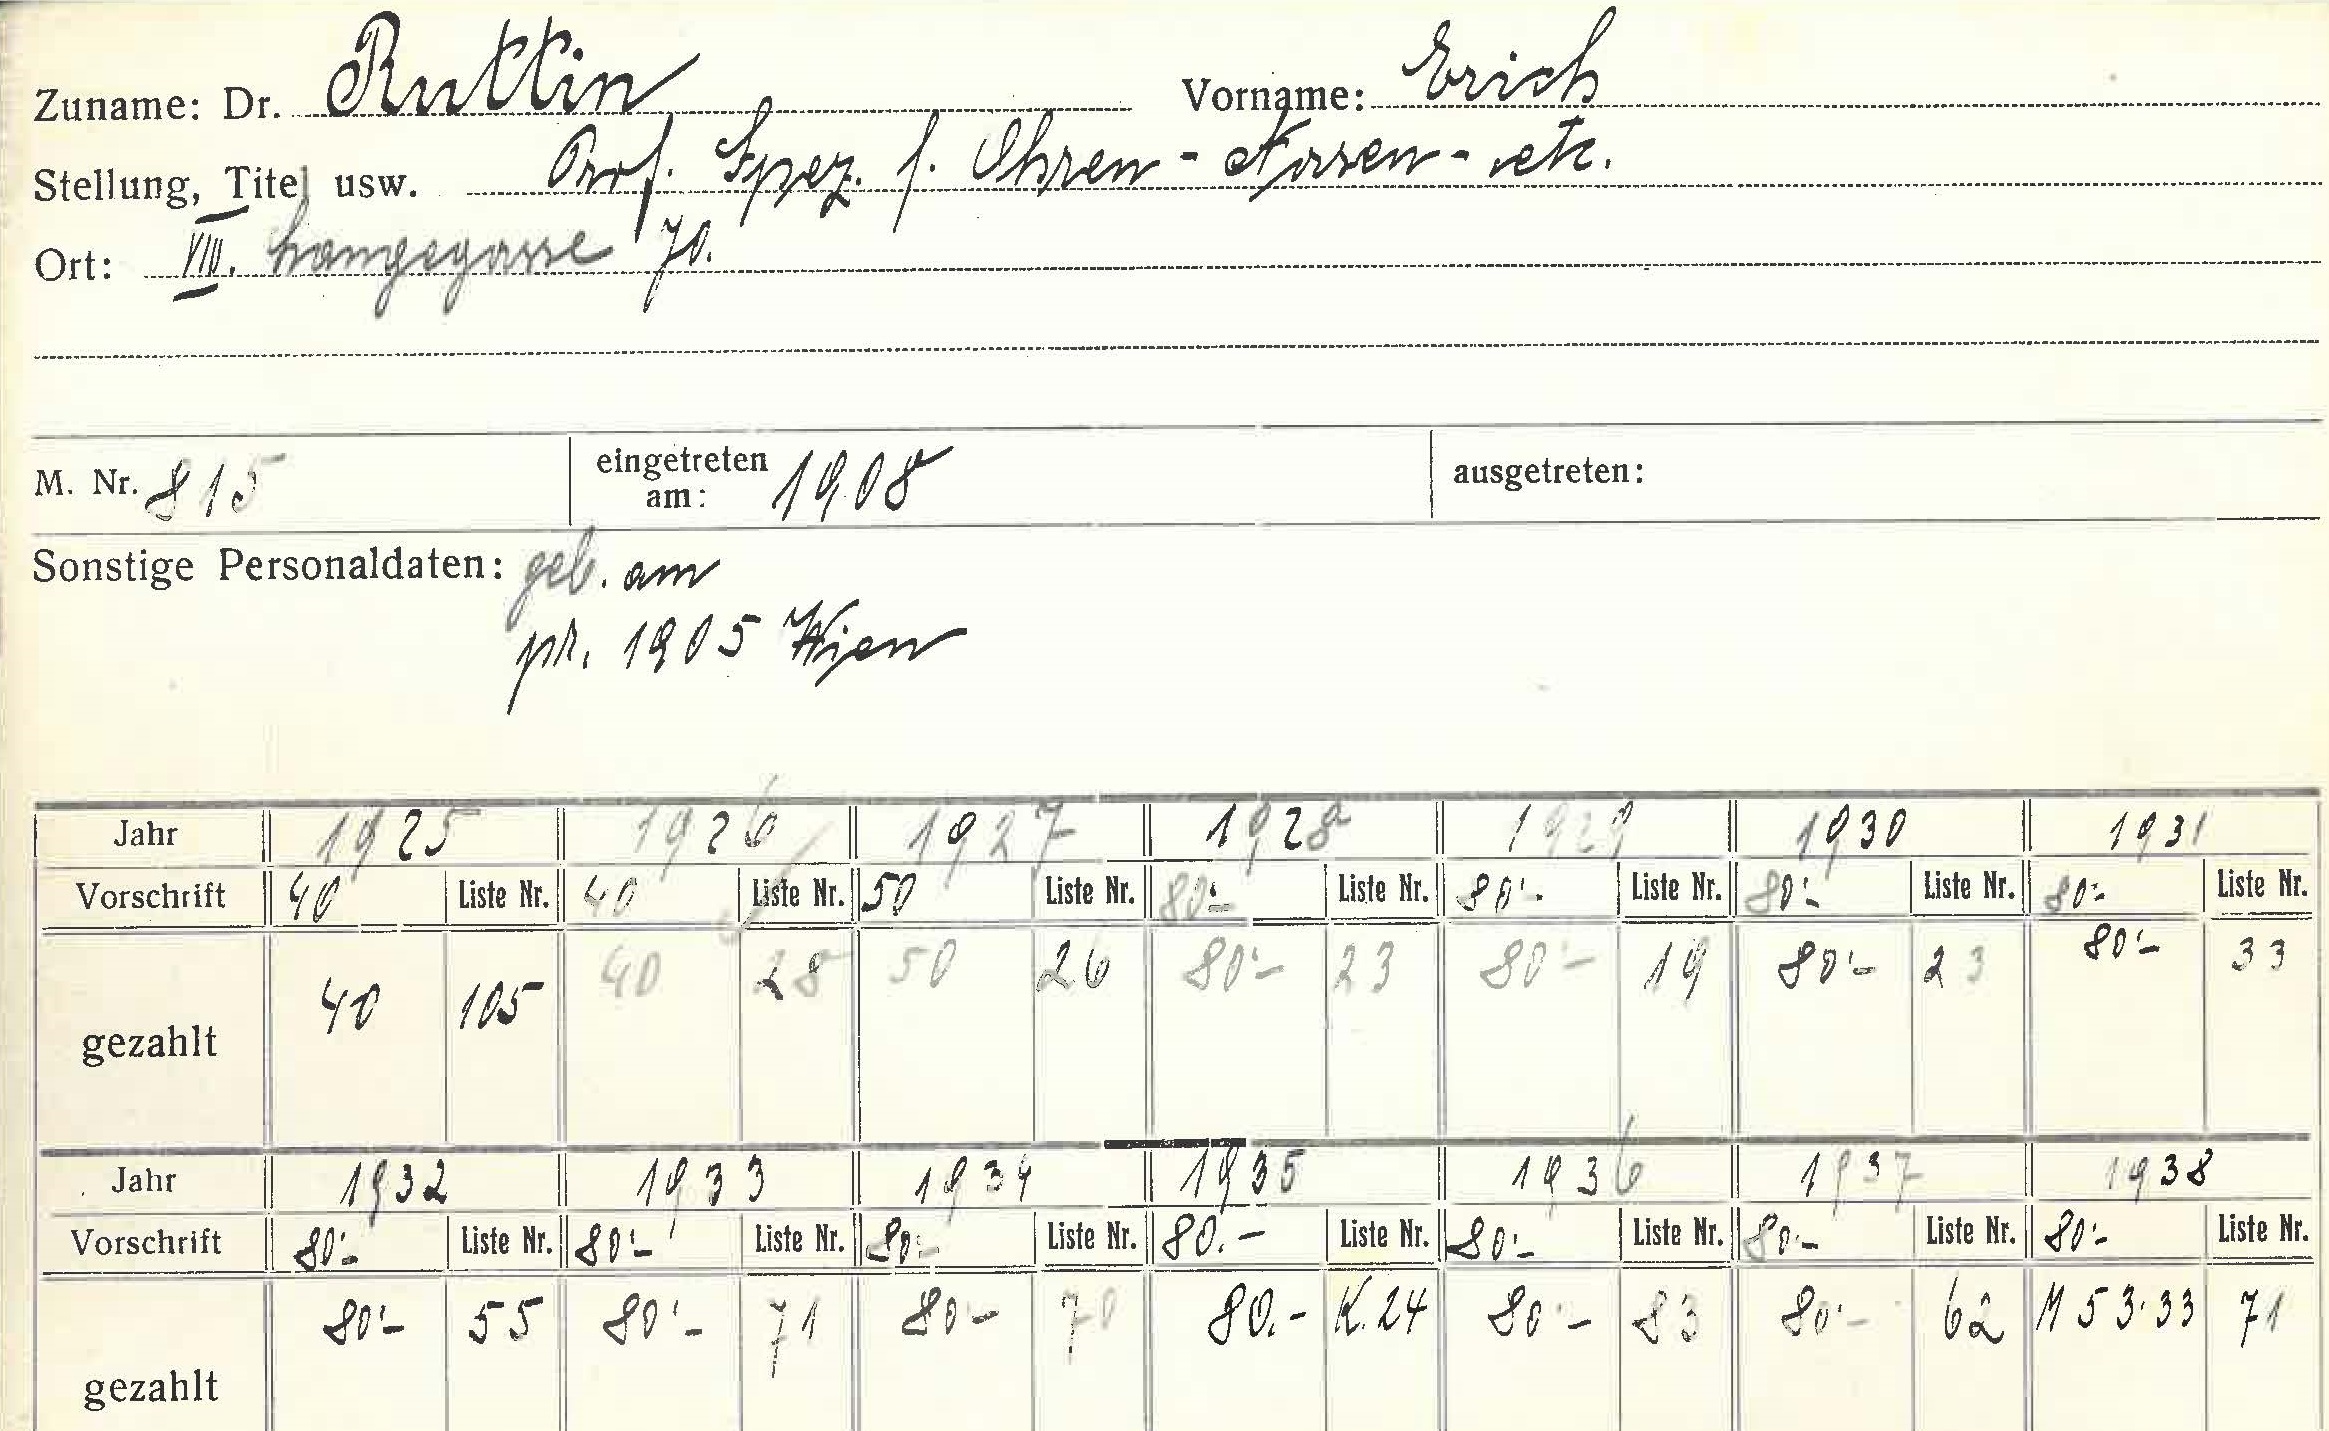 Zuname: Dr. Ruttin Vorname: Erich
Stellung, Titel usw. Prof. Spez. f. Ohren- Nasen- etc.
Ort: VIII. Langegasse 70.
M. Nr. 815 eingetreten am: 1908 ausgetreten:
Sonstige Personaldaten: geb. am
pr. 1905 Wien
Jahr 1925 1926 1927 1928 1929 1930 1931
Vorschrift 40 Liste Nr. 40 Liste Nr. 50 Liste Nr. 80.- Liste Nr. 80.- Liste Nr. 80.- Liste Nr. 80.- Liste Nr.
gezahlt 40 105 40 28 50 26 80.- 23 80.- 19 80.- 23 80.- 33
Jahr 1932 1933 1934 1935 1936 1937 1938
Vorschrift 80.- Liste Nr. 80.- Liste Nr. 80.- Liste Nr. 80.- Liste Nr. 80.- Liste Nr. 80.- Liste Nr. 80.- Liste Nr.
gezahlt 80.- 55 80.- 71 80.- 70 80.- K.24 80.- 83 80.- 62 M 53.33 71